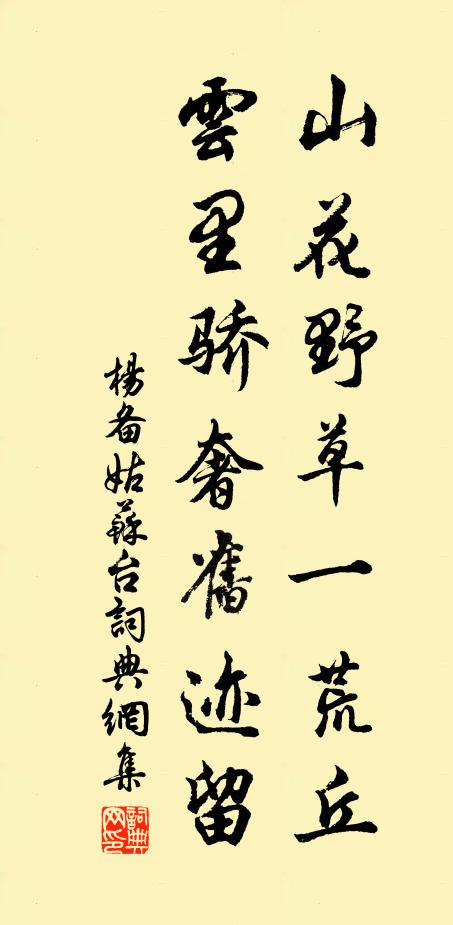 山花野草一荒丘
雲里骄奢舊迹留
楊备姑蘇台詞典網集
詞典網印